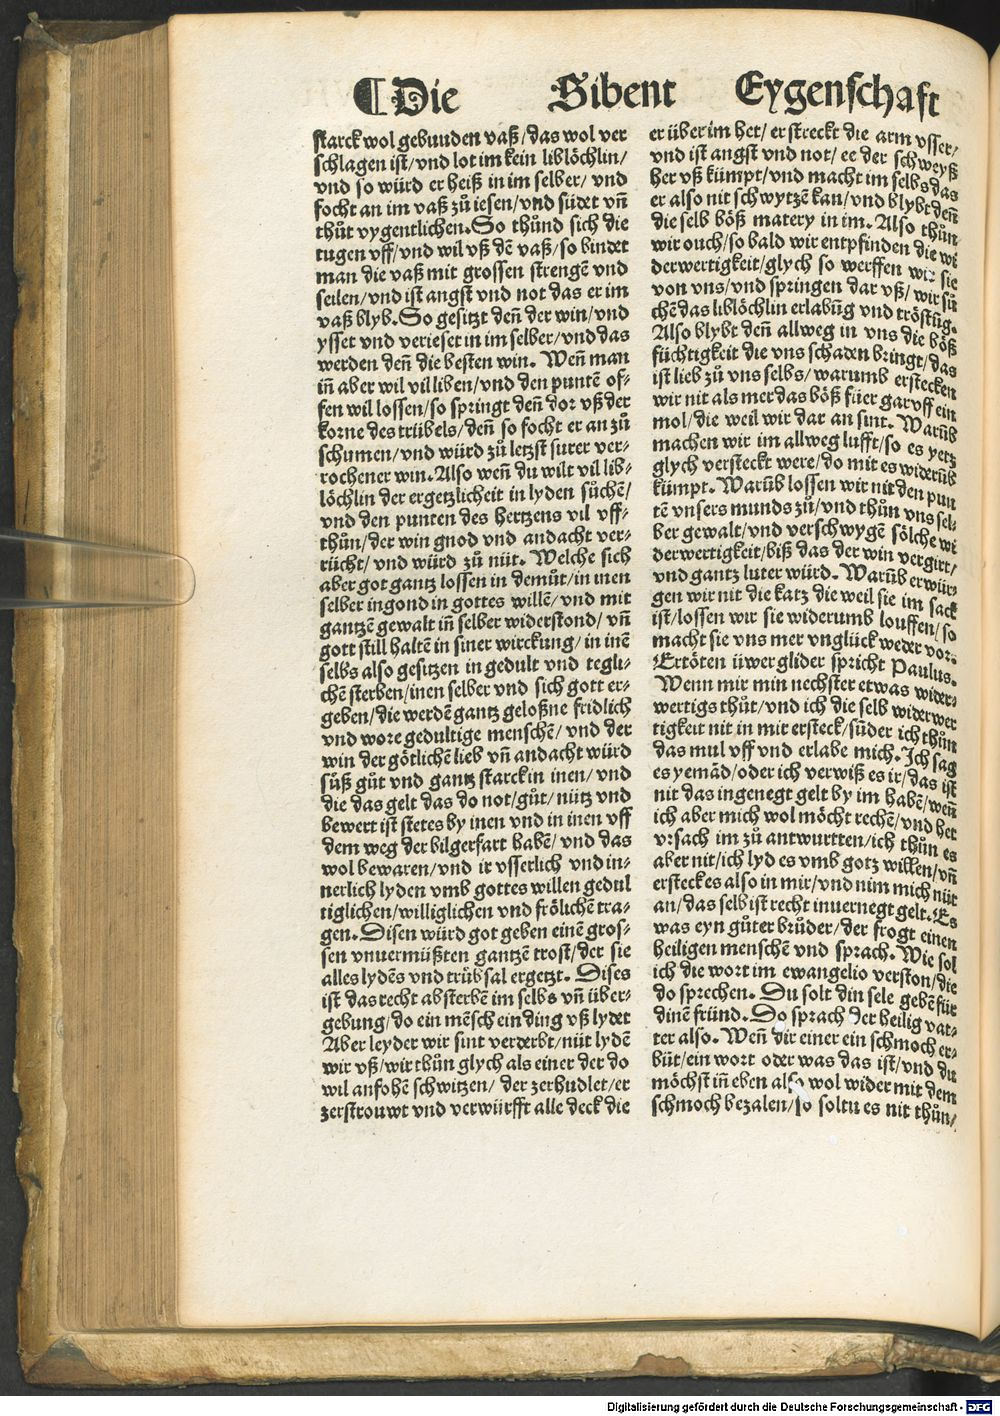 ¶Die Sibent Eygenschafft
starck wol gebunden vaß/das wol ver
schlagen ist/vnd lot im kein liblöchlin/
vnd so würd er heiß in im selber/vnd
focht an im vaß zů iesen/vnd südet vn̄
thůt vygentlichen. So thůnd sich die
tugen vff/vnd wil vß dē vaß/so bindet
man die vaß mit grossen strengē vnd
seilen/vnd ist angst vnd not das er im
vaß blyb. So gesitzt deñ der win/vnd
ysset vnd verieset in im selber/vnd das
werden deñ die besten win. Weñ man
iñ aber wil vil liben/vnd den puntē of⸗
fen wil lossen/so springt deñ dor vß der
korne des trübels/deñ so focht er an zů
schumen/vnd würd zů letzst surer ver⸗
rochener win. Also weñ du wilt vil lib⸗
löchlin der ergetzlicheit in lyden sůchē/
vnd den punten des hertzens vil vff⸗
thůn/der win gnod vnd andacht ver⸗
rücht/vnd würd zů nüt. Welche sich
aber got gantz lossen in demůt/in inen
selber ingond in gottes willē/vnd mit
gantzē gewalt iñ selber widerstond/vn̄
gott still haltē in siner wirckung/in inē
selbs also gesitzen in gedult vnd tegli⸗
chē sterben/inen selber vnd sich gott er⸗
geben/die werdē gantz geloßne fridlich
vnd wore gedultige menschē/vnd der
win der götlichē lieb vn̄ andacht würd
sůß gůt vnd gantz starck in inen/vnd
die das gelt das do not/gůt/nütz vnd
bewert ist stetes by inen vnd in inen vff
dem weg der bilgerfart habē/vnd das
wol bewaren/vnd ir vsserlich vnd in⸗
nerlich lyden vmb gottes willen gedul
tiglichen/williglichen vnd frölichē tra⸗
gen. Disen würd got geben einē gros⸗
sen vnuermüßten gantzē trost/der sie
alles lydēs vnd trübsal ergetzt. Dises
ist das recht absterbē im selbs vn̄ über⸗
gebung/do ein mēsch ein ding vß lydet
Aber leyder wir sint verderbt/nüt lydē
wir vß/wir thůn glych als einer der do
wil anfohē schwitzen/der zerhudlet/er
zerstrouwt vnd verwürfft alle deck die
er über im het/er streckt die arm vsser/
vnd ist angst vnd not/ee der schweyß
her vß kümpt/vnd macht im selbs das
er also nit schwytzē kan/vnd blybt deñ
die selb böß matery in im. Also thůn
wir ouch/so bald wir entpfinden die wi
derwertigkeit/glych so werffen wir sie
von vns/vnd springen dar vß/wir sů
chē das liblöchlin erlabūg vnd tröstūg.
Also blybt deñ allweg in vns die böß
füchtigkeit die vns schaden bringt/das
ist lieb zů vns selbs/warumb erstecken
wir nit als mer das böß füer gar vff ein
mol/die weil wir dar an sint. Warūb
machen wir im allweg lufft/so es yetz
glych versteckt were/do mit es widerūb
kümpt. Warūb lossen wir nit den pun
tē vnsers munds zů/vnd thůn vns sel⸗
ber gewalt/vnd verschwygē sölche wi
derwertigkeit/biß das der win vergirt/
vnd gantz luter würd. Warūb erwür⸗
gen wir nit die katz die weil sie im sack
ist/lossen wir sie widerumb louffen/so
macht sie vns mer vnglück weder vor.
Ertöten üwer glider spricht Paulus.
Wenn mir min nechster etwas wider⸗
wertigs thůt/vnd ich die selb widerwer
tigkeit nit in mir ersteck/sūder ich thůn
das mul vff vnd erlabe mich. Ich sag
es yemād/oder ich verwiß es ir/das ist
nit das ingenegt gelt by im habē/weñ
ich aber mich wol möcht rechē/vnd het
vrsach im zů antwurtten/ich thůn es
aber nit/ich lyd es vmb gotz willen/vn̄
ersteck es also in mir/vnd nim mich nüt
an/das selb ist recht inuernegt gelt. Es
was eyn gůter brůder/der frogt einen
heiligen menschē vnd sprach. Wie sol
ich die wort im ewangelio verston/die
do sprechen. Du solt din sele gebē für
dinē fründ. Do sprach der heilig vat⸗
ter also. Weñ dir einer ein schmoch er⸗
büt/ein wort oder was das ist/vnd du
möchst iñ eben also wol wider mit dem
schmoch bezalen/so soltu es nit thůn/
Digitalisierung gefördert durch die Deutsche Forschungsgemeinschaft - DFG